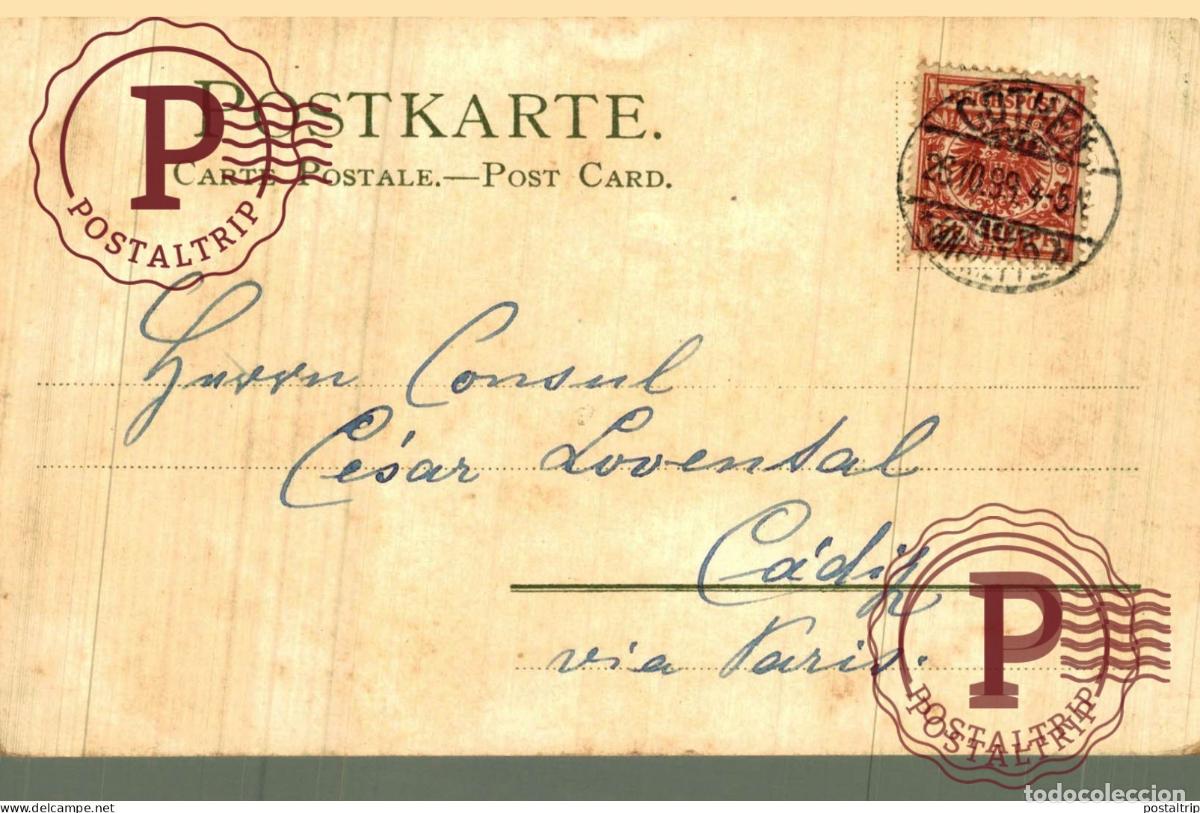 POSTKARTE.
CARTE POSTALE.—POST CARD.
P
POSTALTRIP
REICHSPOST
CÖTHEN
26.10.99.4-5N
Herrn Consul
César Lovental
Cádiz
via Paris.
P
POSTALTRIP
POSTALTRIP
todocoleccion
https://www.delcampe.net
postaltrip